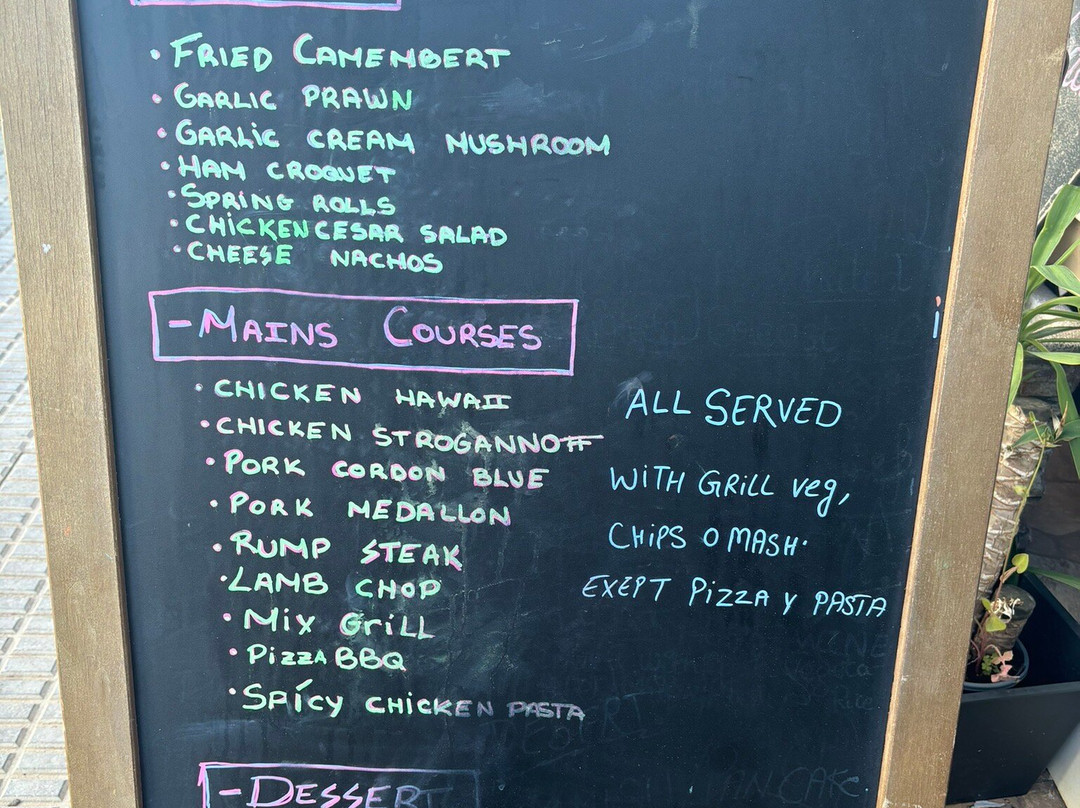 • FRIED CAMEMBERT
• GARLIC PRAWN
• GARLiC CREAM MUSHROOM
• HAM CROQUET
• SPRING ROLLS
• CHiCKEN CESAR SALAD
• CHEESE NACHOS
- MAINS COURSES
• CHICKEN HAWAII
• CHICKEN STROGANNOFF
• PORK CORDON BLUE
• PORK MEDALLON
• RUMP STEAK
• LAMB CHOP
• Mix GRiLL
• PizzA BBQ
• SPíCy CHiCKEN PASTA
ALL SERVED
WiTH GRiLL veg,
CHiPS O MASH.
EXEPT PizzA y PASTA
- DESSERT